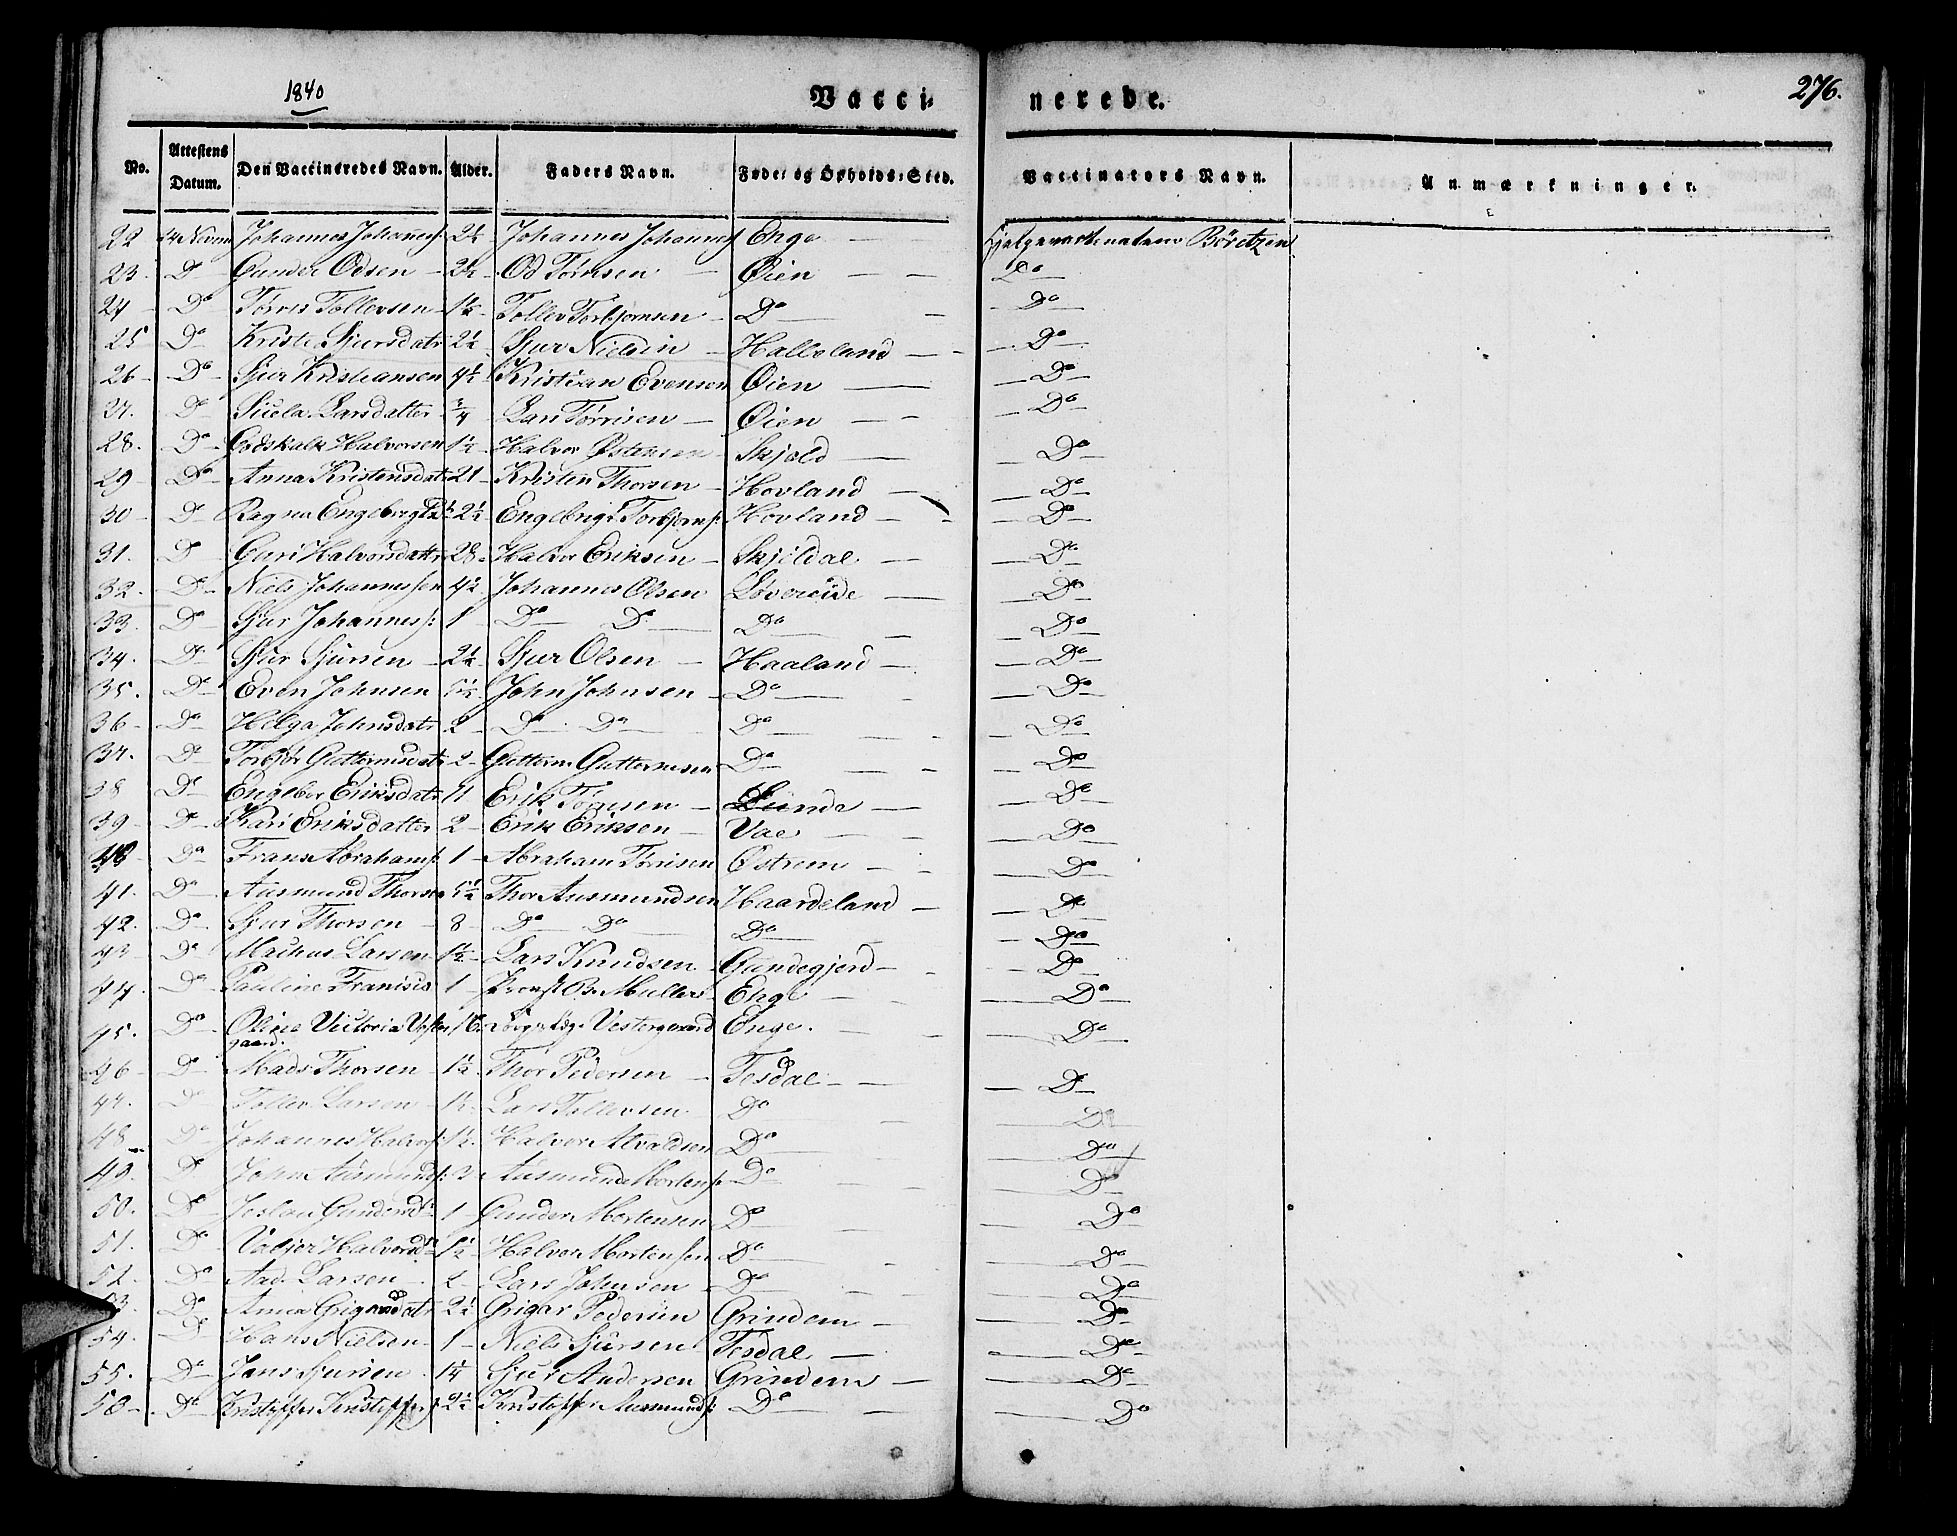 1840 Vacci- nerede. 276.
No. Attestens Datum. Den Vaccineredes Navn. Alder. Faders Navn. Føde: og Opholds: Sted. Vaccinators Navn. Anmærkninger.
22 24 Novem Johannes Johannesf 2½ Johannes Johannesf Enge Børetzen
23. Do Gunder Odsen 2½ Od Tørresen Øien Do
24 Do Tørres Tollevsen 1½ Tollev Torbjørnsen Do Do
25 Do Kristi Sjursdatr 2½ Sjur Nielsen Halleland Do
26 Do Sjur Kristiansen 4½ Kristian Evensen Øien Do
27. Do Sicela Larsdatter ¾ Lars Tørrisen Øien Do
28. Do Godskalk Halvorsen 1½ Halvor Østensen Skjold Do
29 Do Anna Kristensdatr 21 Kristen Thorsen Hovland Do
30 Do Ragna 2½ Engebrigt Torbjørns: Hovland Do
31. Do Guri Halvorsdattr 28 Halvor Eriksen Skjoldal Do
32. Do Niels Johannessen 4½ Johannes Olsen Løvereide Do
33. Do Sjur Johannesf: 1 Do Do Do Do
34. Do Sjur Sjursen 2½ Sjur Olsen Haaland Do
35. Do Even Johnsen John Johnsen Do Do
36 Do Helga Johnsdatr 2 Do Do Do Do
37. Do Torbjør Guttormsdatr 2 Guttorm Guttormsen Do Do
38 Do Engebor Eriksdatr 11 Erik Tørresen Lunde Do
39 Do Kari Eriksdatter 2 Erik Eriksen Vae Do
40 Do Frans Abrahamf: 1 Abraham Tørrisen Østrem Do
41. Do Aasmund Thorsen 5½ Thor Aasmundsen Haardeland Do
42. Do Sjur Thorsen 8 Do Do Do Do
43 Do Markus Larsen 1½ Lars Knudsen Gundegjerd Do
44. Do Pauline 1 Provst B. Muller Enge Do
45. Do Oline Victoria Vester 16 Vestergaard Enge. Do
gaard.
46 Do Mads Thorsen 1½ Thor Pedersen Tesdal Do
47. Do Tollev Larsen 1½ Lars Tollevsen Do Do
48 Do Johannes Halvorf: 1½ Halvor Alvaldsen Do Do
49. Do John Aasmundf: 3 Aasmund Mortenf: Do Do
50. Do 1 Gunder Mortensen Do Do
51. Do 1½ Halvor Mortensen Do Do
52. Do Aad Larsen 2 Lars Johnsen Do Do
53. Do Anna 2½ Grigar Pedersen Grindem Do
54. Do Hans Nielsen 1 Niels Sjursen Tesdal Do
55. Do Jans Sjursen 14 Sjur Andersen Grindem Do
Do Kristoffer Kristofferf: Kristoffer Aasmundf: Do Do